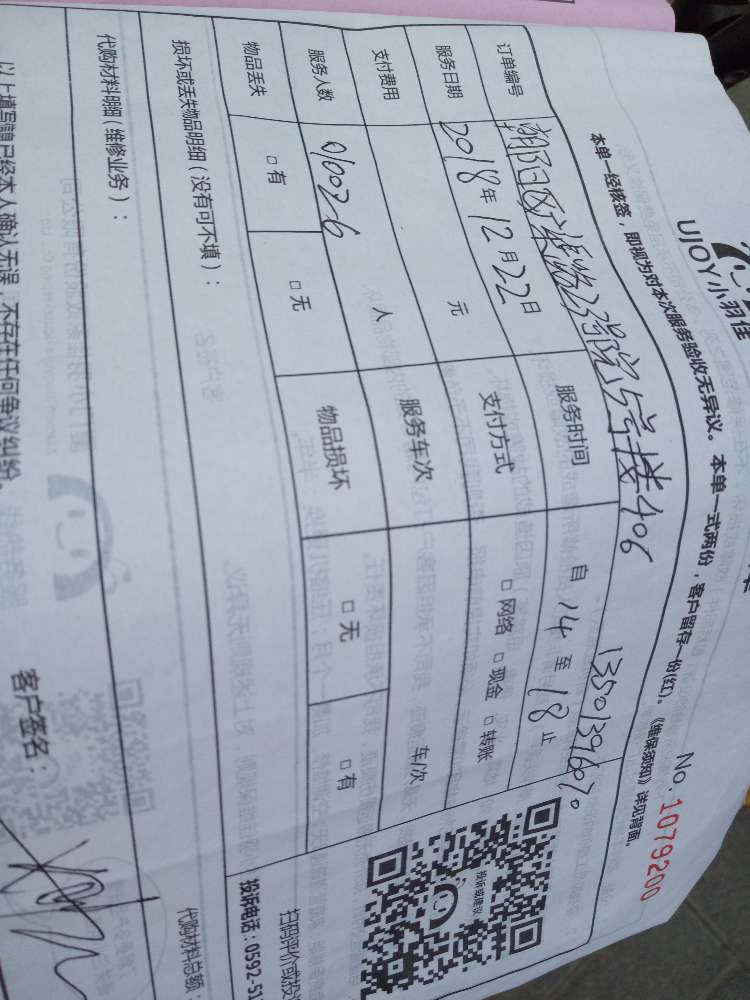 UJOY小羽佳
No.1079200
本单一经核签，即视为对本次服务验收无异议。本单一式两份，客户留存一份(红)。《维保须知》详见背面。
订单编号 朝阳区 路2号院5号楼406 13501396070
服务日期 2018年12月22日 服务时间 自14至18止
支付费用 元 支付方式 □网络 □现金 □转账
服务人数 010026 人 服务车次 车/次
物品丢失 □有 □无 物品损坏 □无 □有
损坏或丢失物品明细（没有可不填）：
代购材料明细（维修业务）：
代购材料总额：
以上填写已经本人确认无误，不存在任何争议纠纷。
客户签名：
投诉或建议
扫码评价或投
投诉电话：0592-51